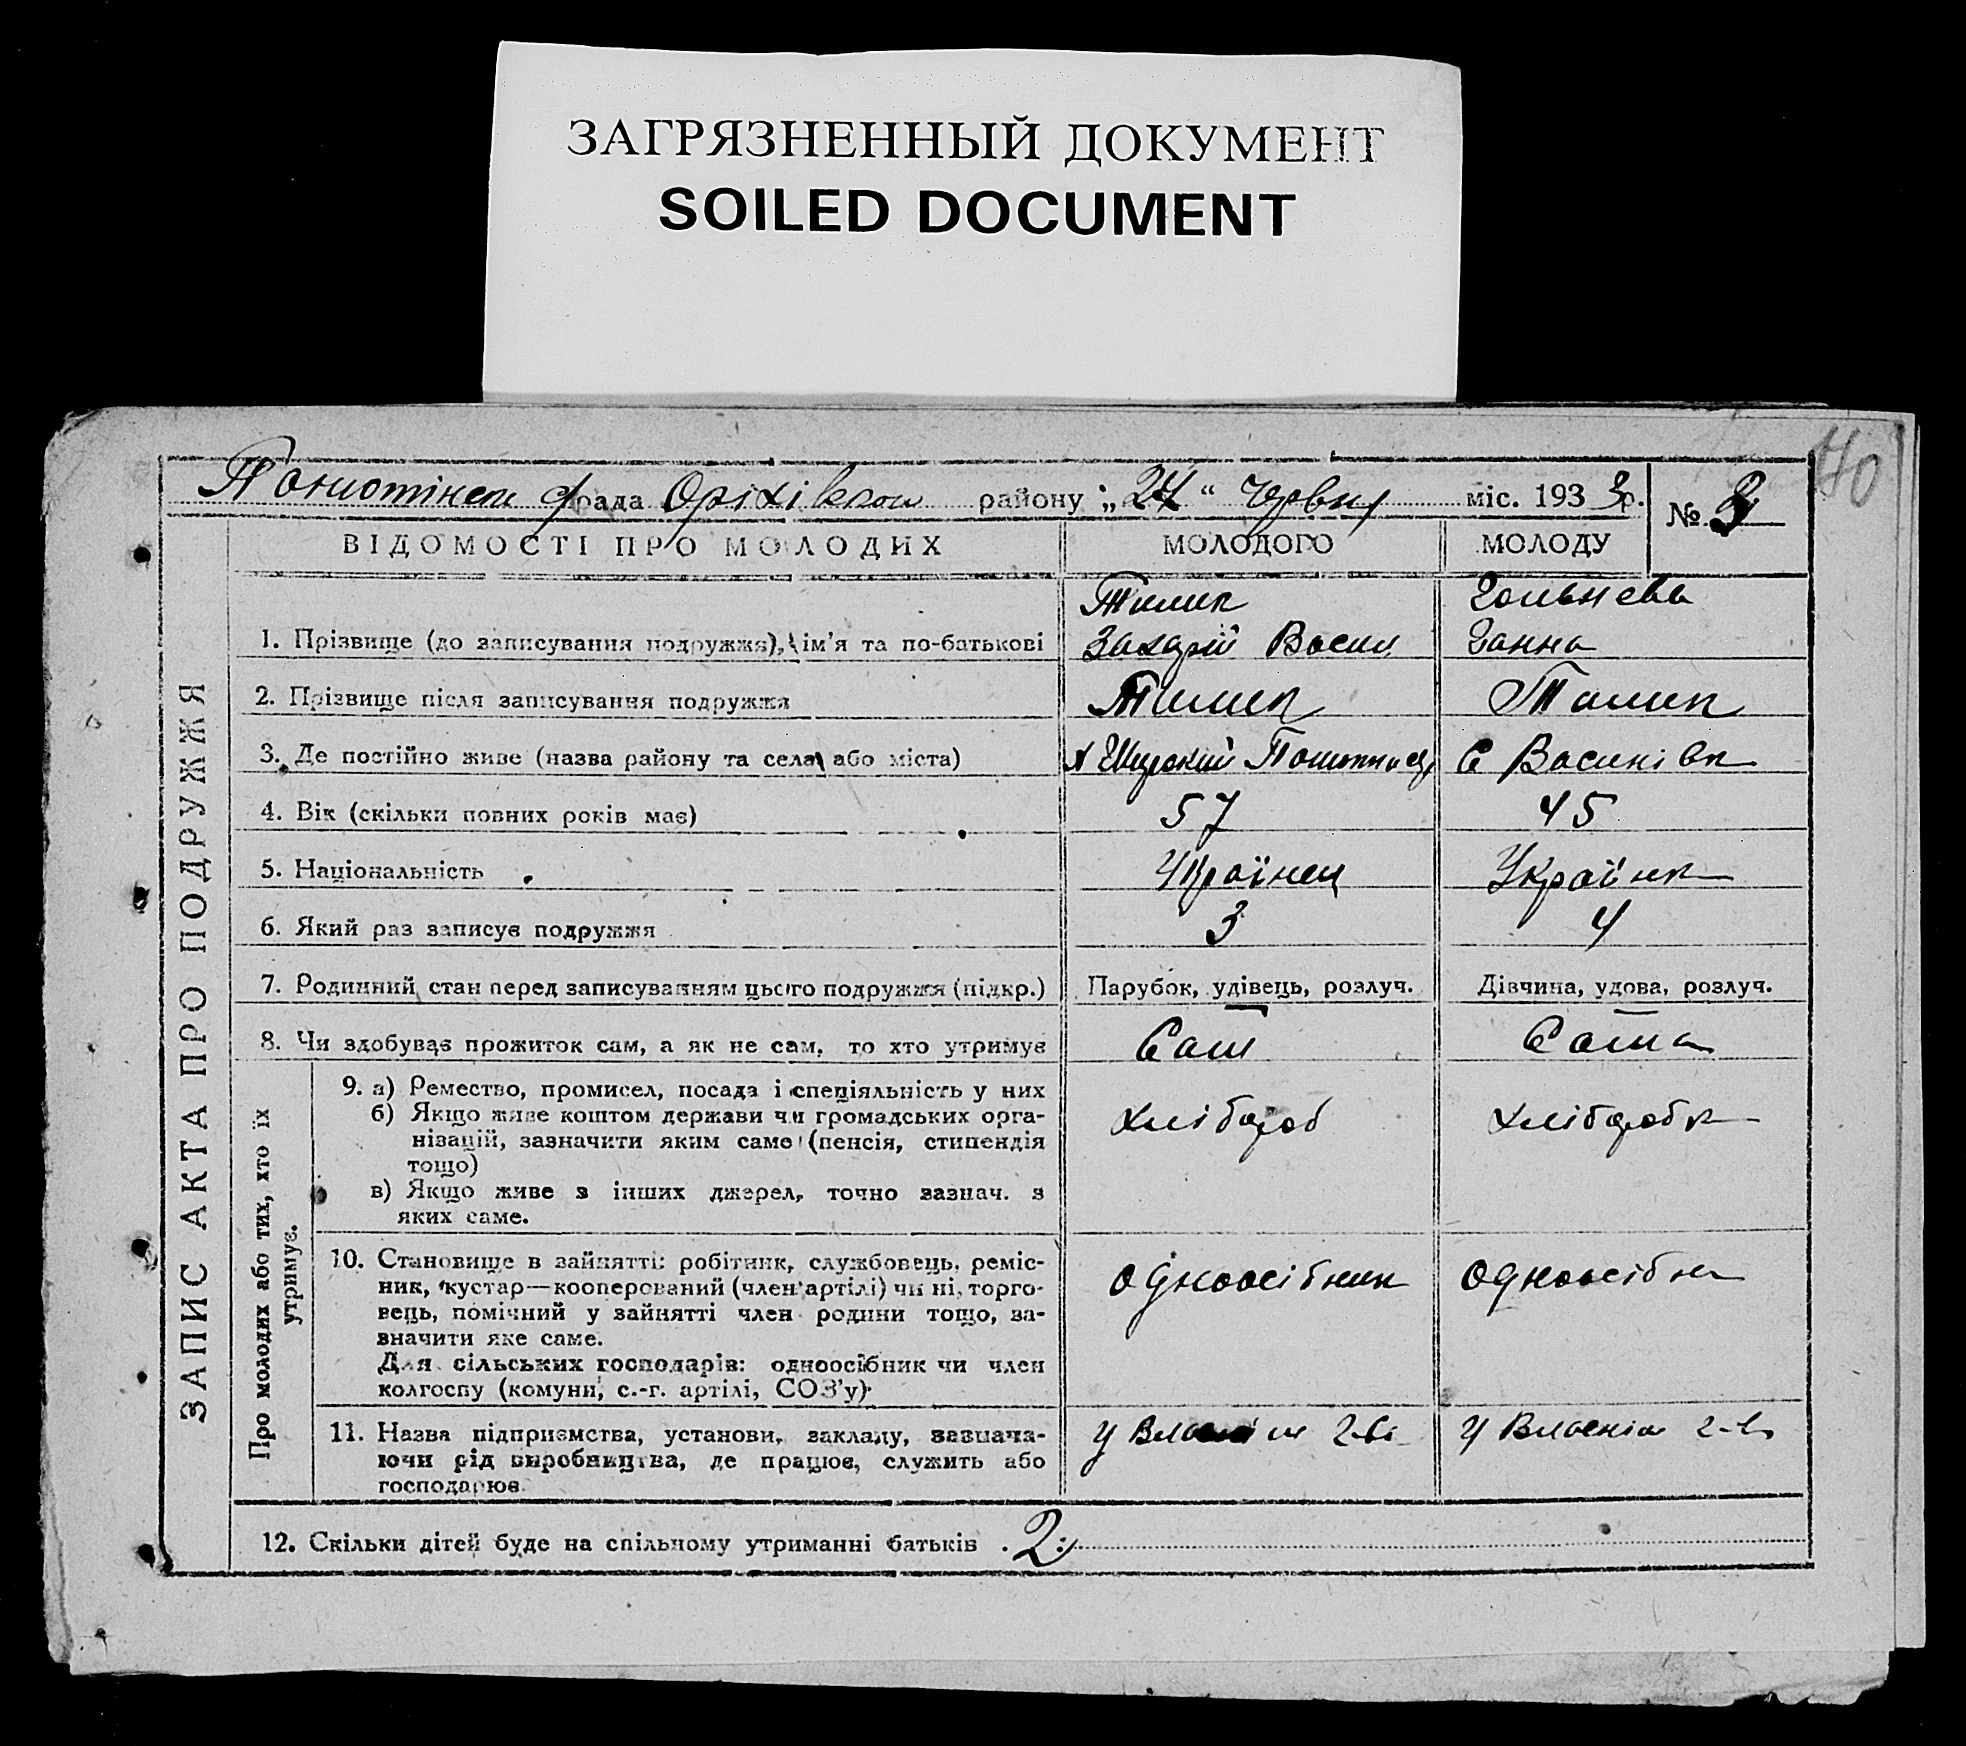 ЗАГРЯЗНЕННЫЙ ДОКУМЕНТ
SOILED DOCUMENT
40
рада району „24“ Червня міс. 1933р. № 3
ВІДОМОСТІ ПРО МОЛОДИХ МОЛОДОГО МОЛОДУ
ЗАПИС АКТА ПРО ПОДРУЖЖЯ
1. Прізвище (до записування подружжя), ім’я та по-батькові
Захарій Васил Ганна
2. Прізвище після записування подружжя
3. Де постійно живе (назва району та села або міста) с Васинівк
4. Вік (скільки повних років має) 57 45
5. Національність Українец Українк
6. Який раз записує подружжя 3 4
7. Родинний стан перед записуванням цього подружжя (підкр.) Парубок, удівець, розлуч. Дівчина, удова, розлуч.
8. Чи здобуває прожиток сам, а як не сам, то хто утримує Сам Сама
Про молодих або тих, хто їх
утримує.
9. а) Ремество, промисел, посада і спеціяльність у них
б) Якщо живе коштом держави чи громадських орга-
нізацій, зазначити яким саме (пенсія, стипендія
тощо)
в) Якщо живе з інших джерел, точно зазнач. з
яких саме.
хлібороб хліборобк
10. Становище в зайнятті: робітник, службовець, реміс-
ник, кустар—кооперований (член артілі) чи ні, торго-
вець, помічний у зайнятті член родини тощо, за-
значити яке саме.
Для сільських господарів: одноосібник чи член
колгоспу (комуни, с.-г. артілі, СОЗ’у)
одноосібник одноосібн
11. Назва підприємства, установи, закладу, зазнача-
ючи рід виробництва, де працює, служить або
господарює
у власнім г-ві у власнім г-в
12. Скільки дітей буде на спільному утриманні батьків . 2